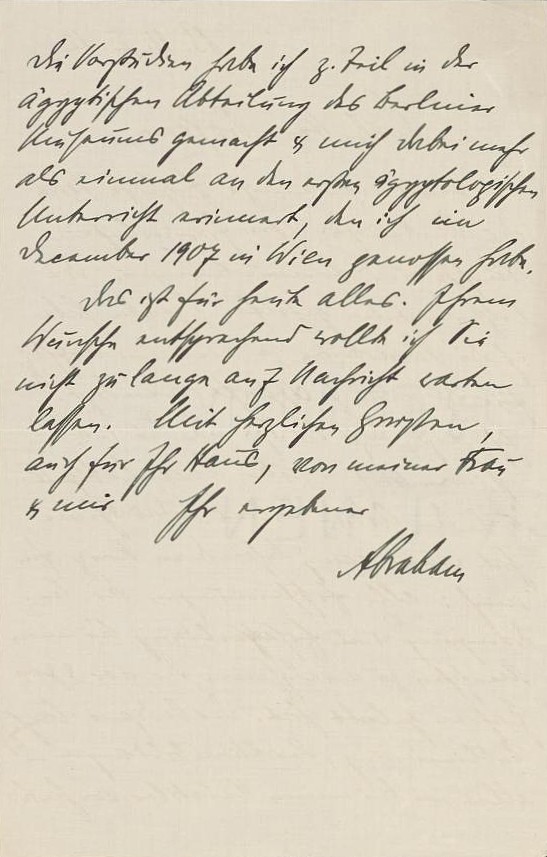 Die Vorstudien habe ich z. Teil in der
ägyptischen Abteilung des Berliner
Museums gemacht & mich dabei mehr
als einmal an den ersten ägyptologischen
Unterricht erinnert, den ich im
December 1907 in Wien genossen habe.
Das ist für heute alles. Ihrem
Wunsche entsprechend wollte ich Sie
nicht zu lange auf Nachricht warten
lassen. Mit herzlichen Grüssen,
auch für Ihr Haus, von meiner Frau
& mir Ihr ergebener
Abraham